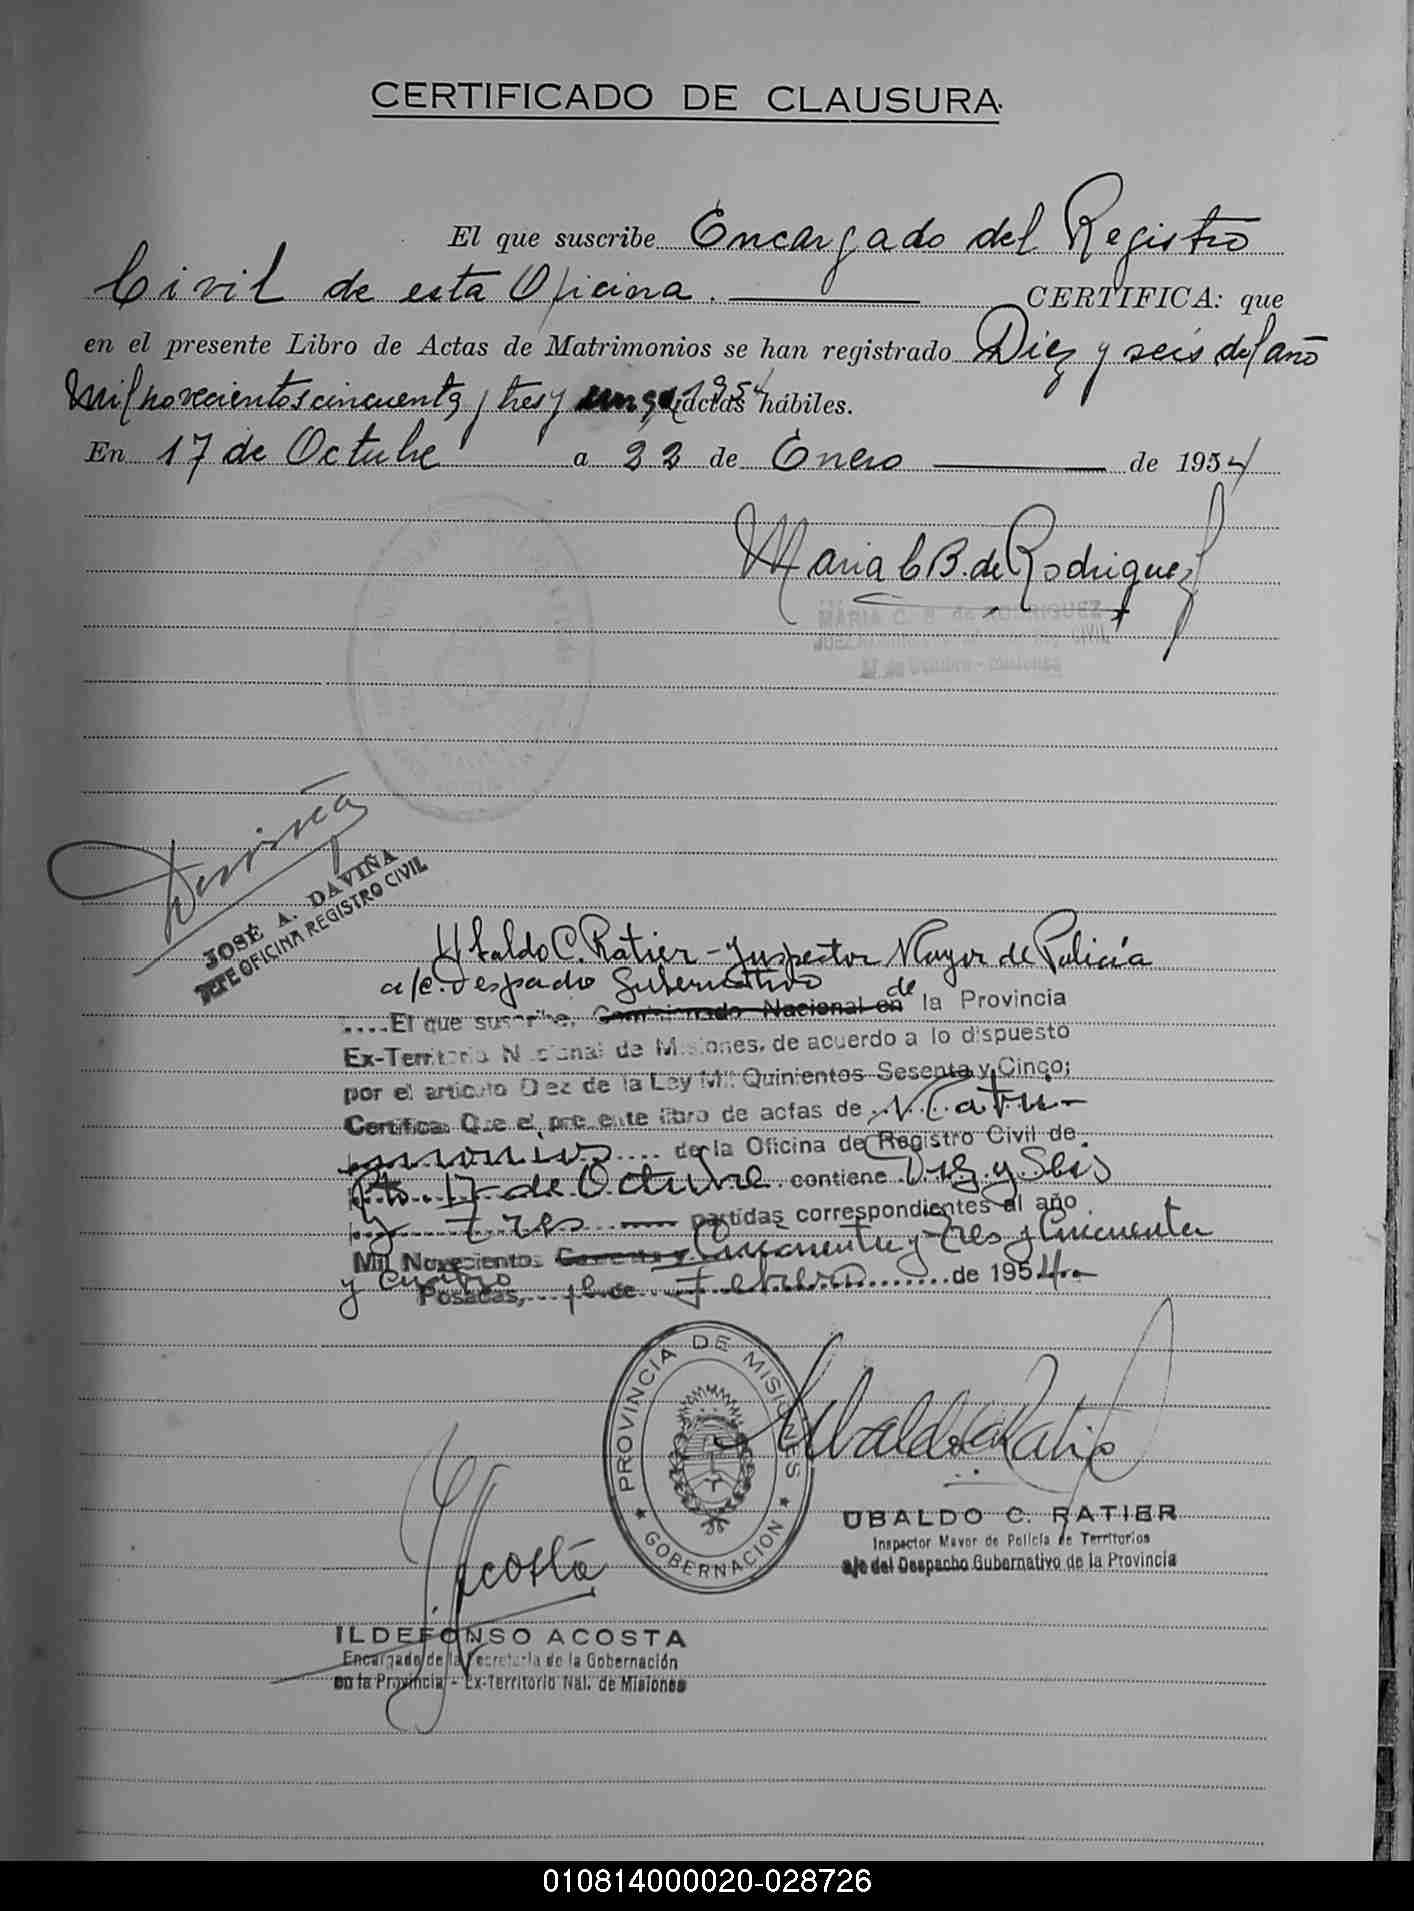 CERTIFICADO DE CLAUSURA.
El que suscribe Encargado del Registro
Civil de esta Oficina. CERTIFICA: que
en el presente Libro de Actas de Matrimonios se han registrado Diez y seis del año
Mil novecientos cincuenta y tres y 1954 actas hábiles.
En 17 de Octubre a 22 de Enero de 1954
Maria C B. de Rodriguez
MARIA C. B. de RODRIGUEZ
Daviña
JOSÉ A. DAVIÑA
JEFE OFICINA REGISTRO CIVIL
Ubaldo C. Ratier - Inspector Mayor de Policía
a/c. Despacho Gubernativo de
....El que suscribe, Comisionado Nacional en la Provincia
Ex-Territorio Nacional de Misiones, de acuerdo a lo dispuesto
por el artículo Diez de la Ley Mil Quinientos Sesenta y Cinco;
Certifica: Que el presente libro de actas de Matri-
monios .... de la Oficina de Registro Civil de
Pto. 17 de Octubre contiene Diez y Seis
y tres partidas correspondientes al año
Mil Novecientos Cincuenta y Tres y Cincuenta
y Cuatro
Posadas, de Febrero de 1954.-
PROVINCIA DE MISIONES
GOBERNACION
Ubaldo C. Ratier
UBALDO C. RATIER
Inspector Mayor de Policía de Territorios
a/c del Despacho Gubernativo de la Provincia
Acosta
ILDEFONSO ACOSTA
Encargado de la Secretaría de la Gobernación
en la Provincia - Ex-Territorio Nal. de Misiones
010814000020-028726